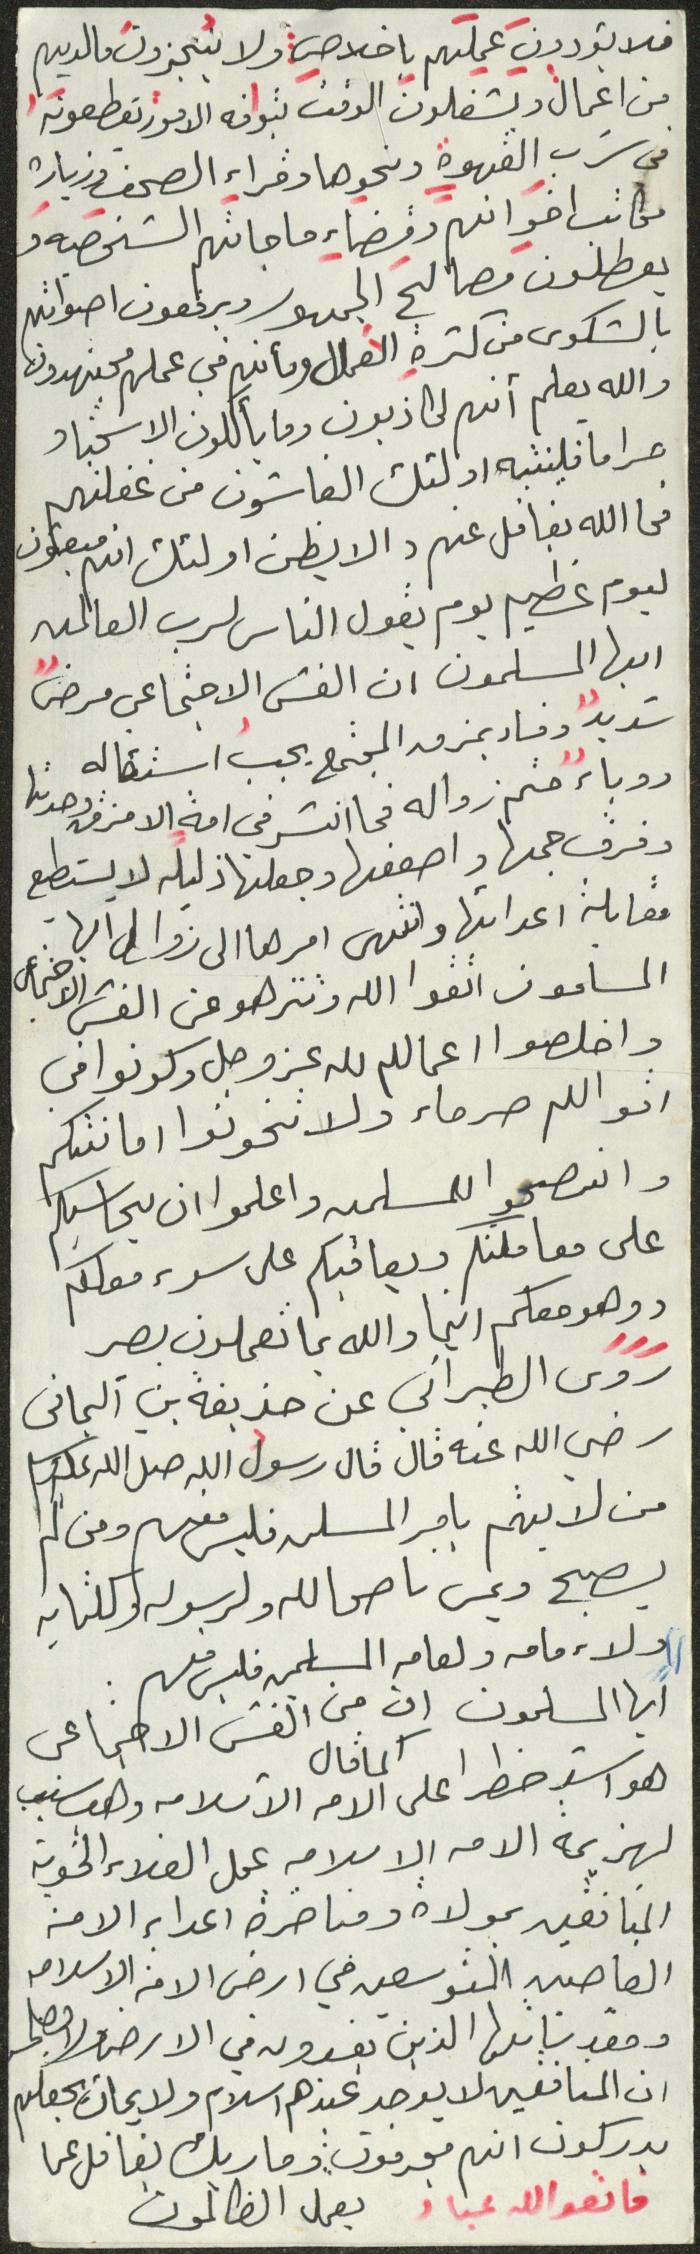 فلا يؤدون عملهم بإخلاص ولا ينجزون ما لديهم
من اعمال ويشغلون الوقت بتوافه الامور يقطعونه
في شرب القهوة ونحوها وقراءه الصحف وزيارة
مكاتب اخوانهم وقضاء حاجاتهم الشخصيه و
يعطلون مصالح الجمهور ويرفعون اصواتهم
بالشكوى من كثرة العمل وأنهم في عملهم مجتهدون
والله يعلم أنهم لكاذبون وما يأكلون الا سحتاً و
حراما فلينتبه اولئك الغاشون من غفلتهم
فما الله بغافل عنهم والا يظن اولئك انهم مبعثون
ليوم عظيم يوم يقول الناس لرب العالمين
ايها المسلمون ان الغش الاجتماعي مرضٌ
شديدٌ وفساد يمزق المجتمع يجب استئصاله
ووباءٌ حتم زواله فما انتشر في امة الا مزق وحدتها
وفرق جمعها واضعفها وجعلها ذليله لا يستطع
مقابلة اعدائها وانتهى امرها الى زوال ايها
المسلمون اتقوا الله وتنزهو عن الغش الاجتماعي
واخلصوا اعمالكم لله عز وجل وكونوا في
اقوالكم صرحاء ولا تخونوا امانتكم
وانصحوا للمسلمين واعلموا ان يحاسبكم
على معاملتكم ويعاقبكم على سوء فعلكم
ووهو معكم اينما والله بما تعملون بصر
روى الطبراني عن حذيفة بن اليماني
رضي الله عنه قال قال رسول الله صلى الله عليه وسلم
من لا يهتم بأمر المسلمين فليس منهم ومن لم
يصبح ويمس ناصحا لله ولرسوله ولكتابه
ولاءمامه ولعامه المسلمين فليس منهم .
أيها المسلمون ان من الغش الاجتماعي
كما قال
هو اشد خطرا على الامه الاسلاميه وهو سبب
لهزيمة الامه الاسلاميه عمل العملاء الخونة
المنافقين بمولاة ومناصرة اعداء الامة
الغاصبين المتوسعين في ارض الامه الاسلاميه
ومقدساتها الذين يفسدون في الارض ولا يصلحون
ان المنافقين لا يوجد عندهم اسلام ولا يمان يجعلهم
يدركون انهم مجرمون وما ربك بغافل عما
يعمل الظالمون فاتقوا الله عباد